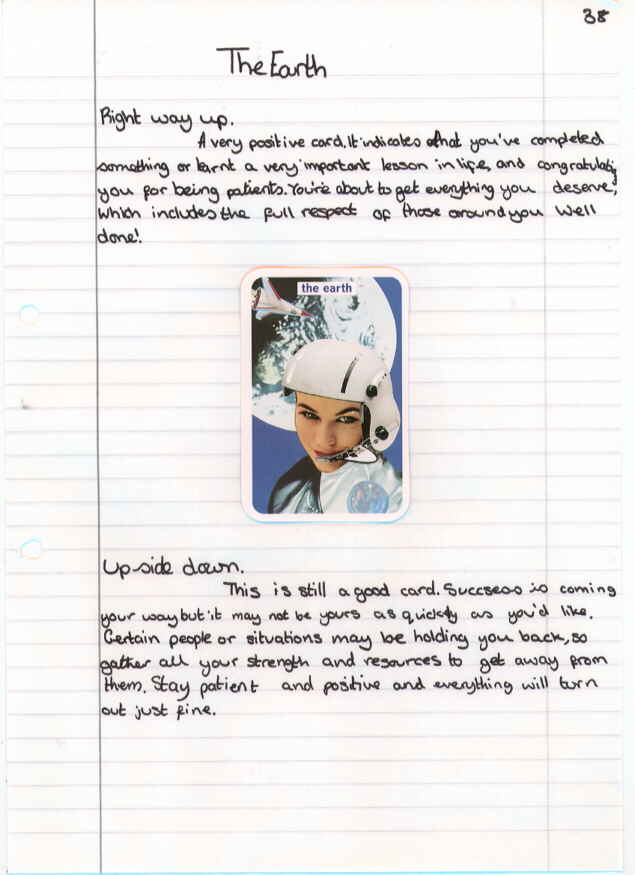 38
The Earth
Right way up.
A very positive card. It indicates that you've completed
something or learnt a very important lesson in life, and congratulates
you for being patients. You're about to get everything you deserve,
which includes the full respect of those around you well
done!
the earth
Upside down.
This is still a good card. Succsess is coming
your way but it may not be yours as quickly as you'd like.
Certain people or situations may be holding you back, so
gather all your strength and resources to get away from
them. Stay patient and positive and everything will turn
out just fine.